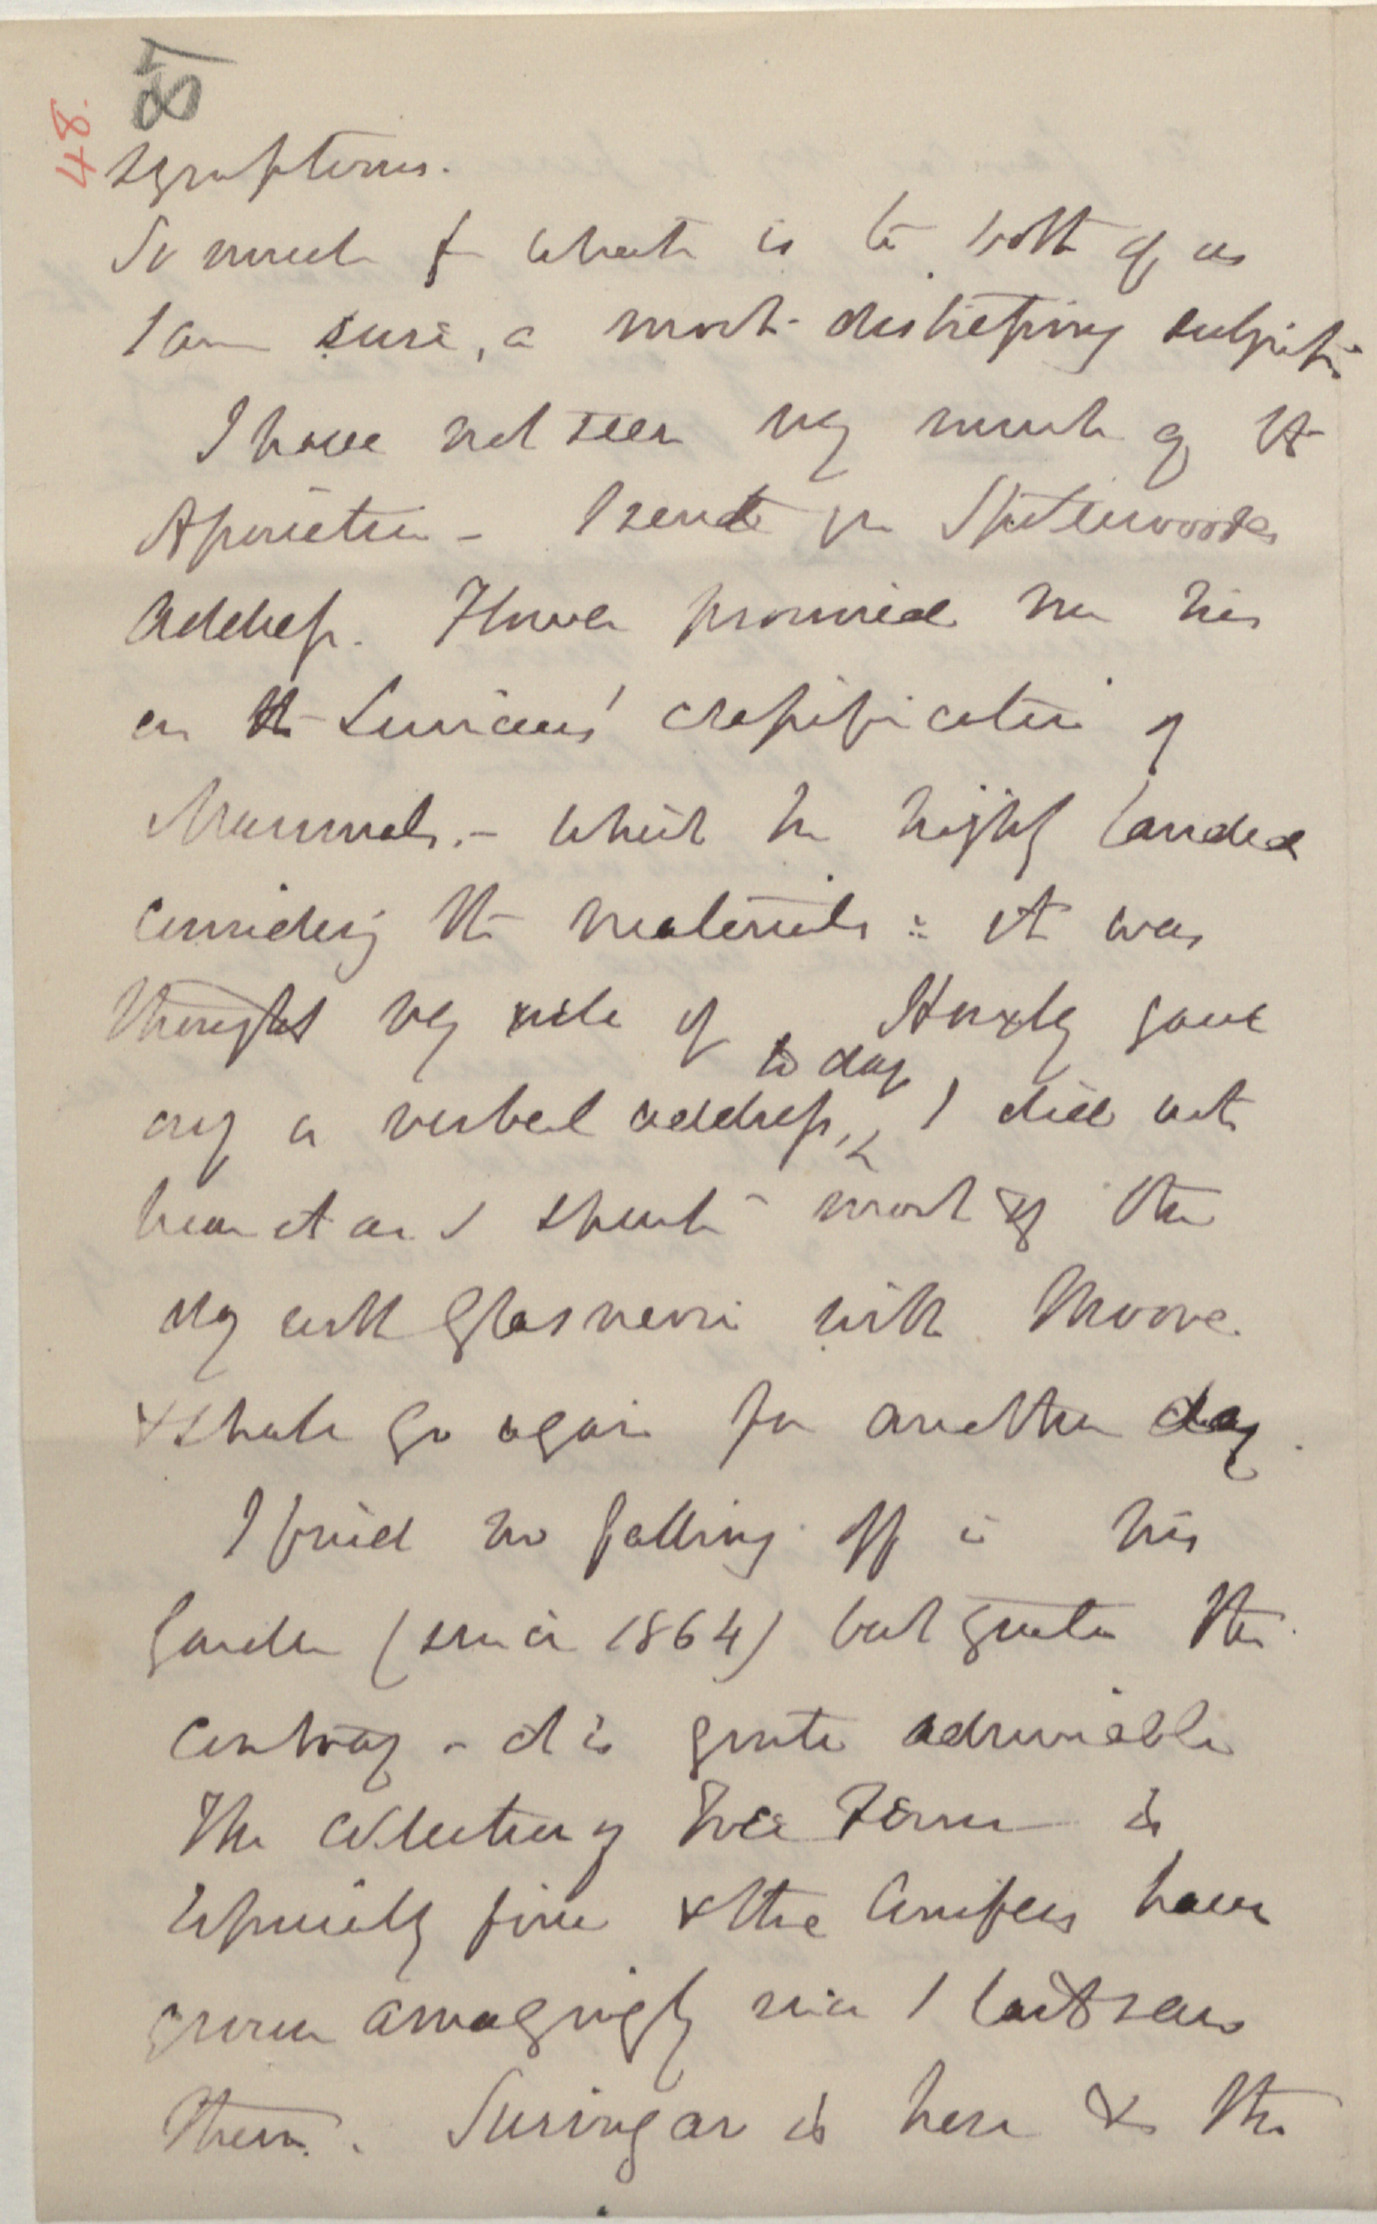 85
48.
symptoms.
So much for what is to both of us
I am sure, a most distressing subject.
I have not seen very much of the
Association - I send you Spottiswoodes
address. Flower promised me his
on the Linnaeus' classification of
Mammals. - which he highly lauded
considering the materials: it was
thought very nice of. Huxley gave
only a verbal address, to day, I did not
hear it as I spent most of the
day with Glasnevin with Moore
& shall go again for another day.
I find no falling off in his
Garden (since 1864) but quite the
contrary - it is quite admirable
The collection of Tree Ferns is
especially fine & the Conifers have
grown amazingly since I last saw
them. Suringar is here & the